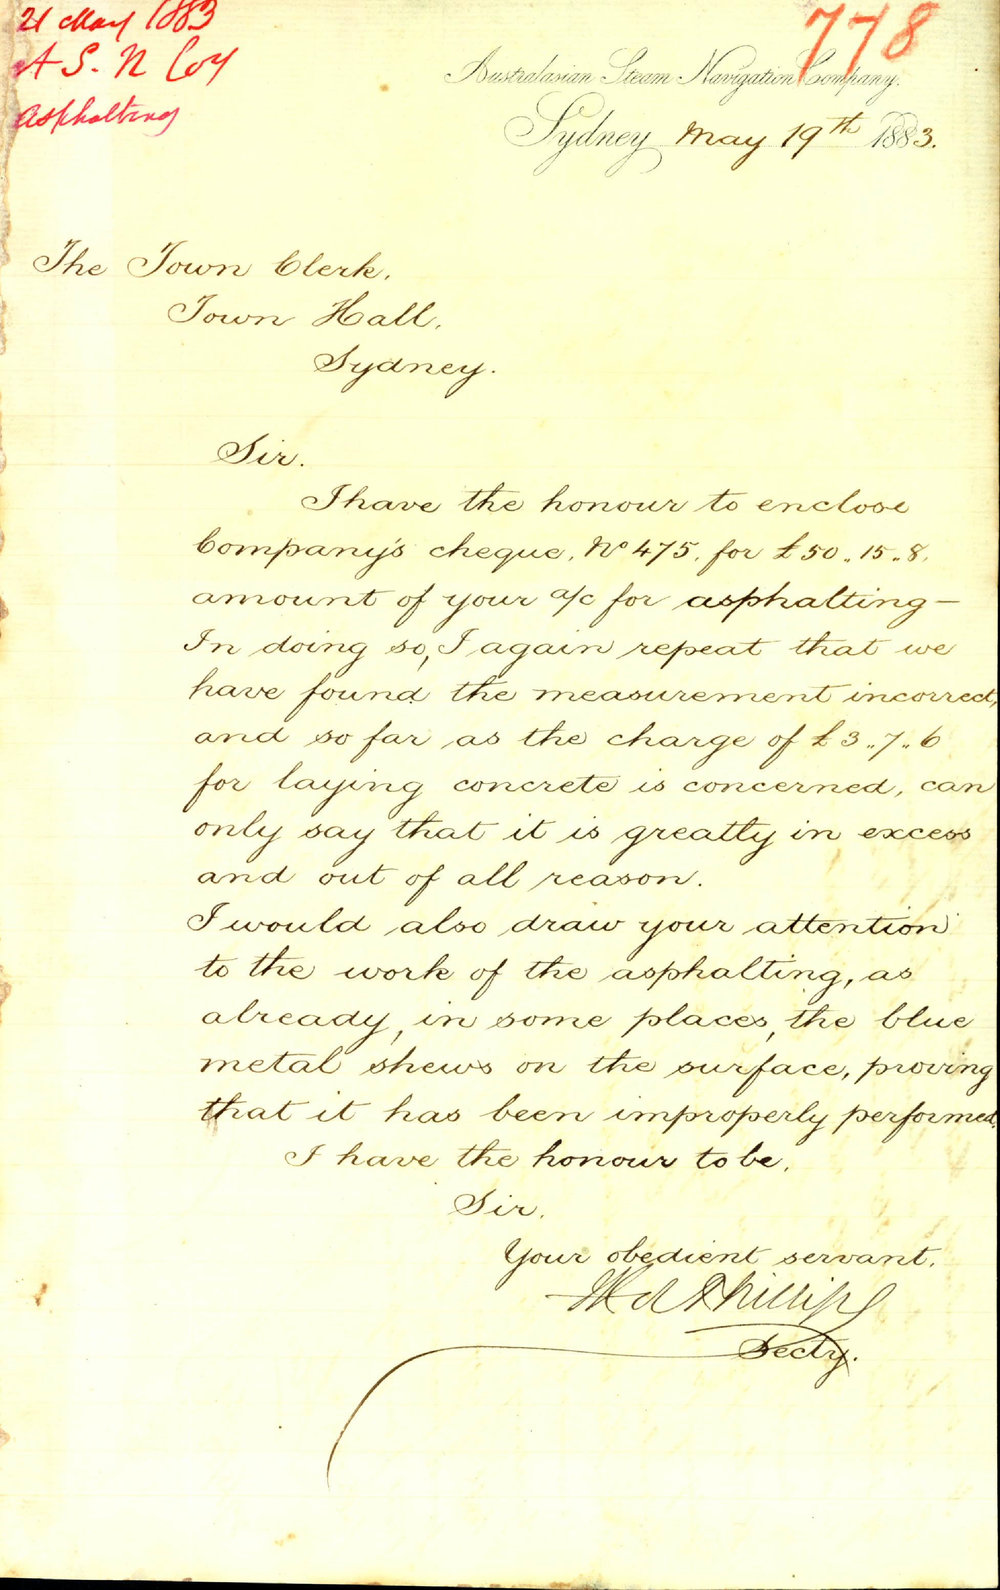 21 May 1883
A S. N Coy
Asphalting
778
Australasian Steam Navigation Company.
Sydney May 19th 1883.
The Town Clerk.
Town Hall.
Sydney.
Sir.
I have the honour to enclose
Company's cheque. No 475. for £50..15..8.
amount of your a/c for asphalting—
In doing so, I again repeat that we
have found the measurement incorrect,
and so far as the charge of £3..7..6
for laying concrete is concerned, can
only say that it is greatly in excess
and out of all reason.
I would also draw your attention
to the work of the asphalting, as
already, in some places, the blue
metal shews on the surface, proving
that it has been improperly performed.
I have the honour to be.
Sir.
Your obedient servant.
Phillips
Secty.